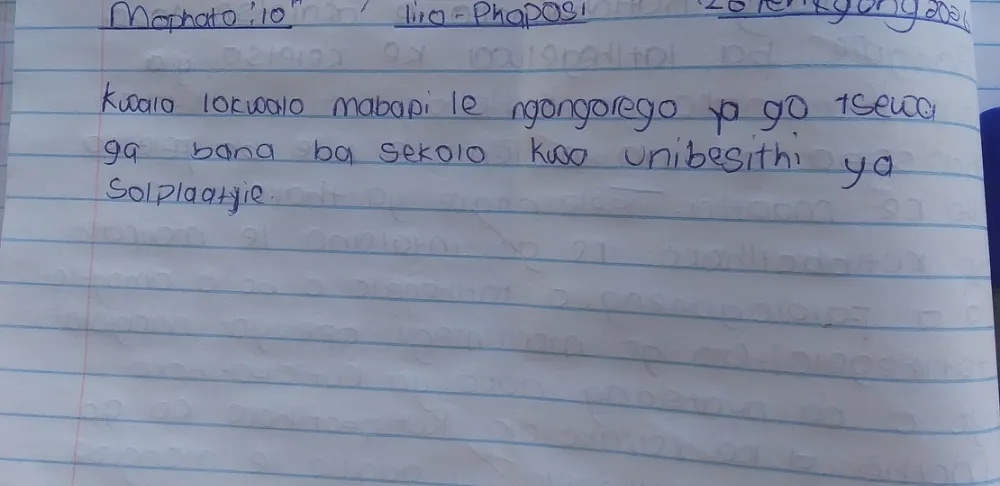 Mophato: 10" Tiro-Phaposi 26 Tlhkgong 2021
Kwalo lokwalo mabapi le ngongorego ya go tsewa
ga bana ba sekolo kwa Unibesithi ya
Solplaatyie.